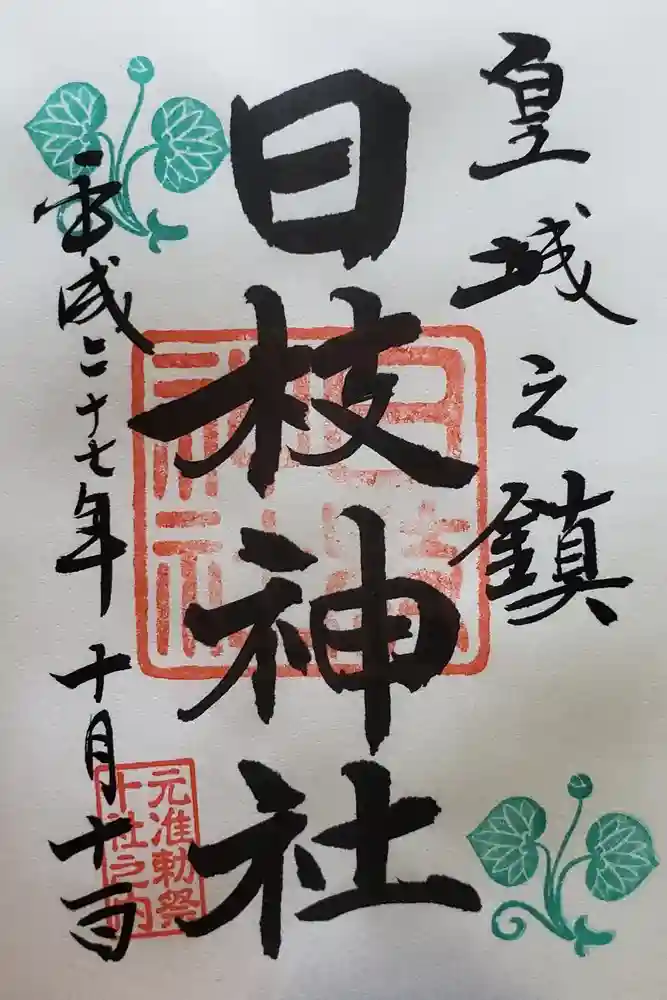 皇城之鎮
日枝神社
日枝
神社
平成二十七年十月十一日
元准勅祭
十社之内